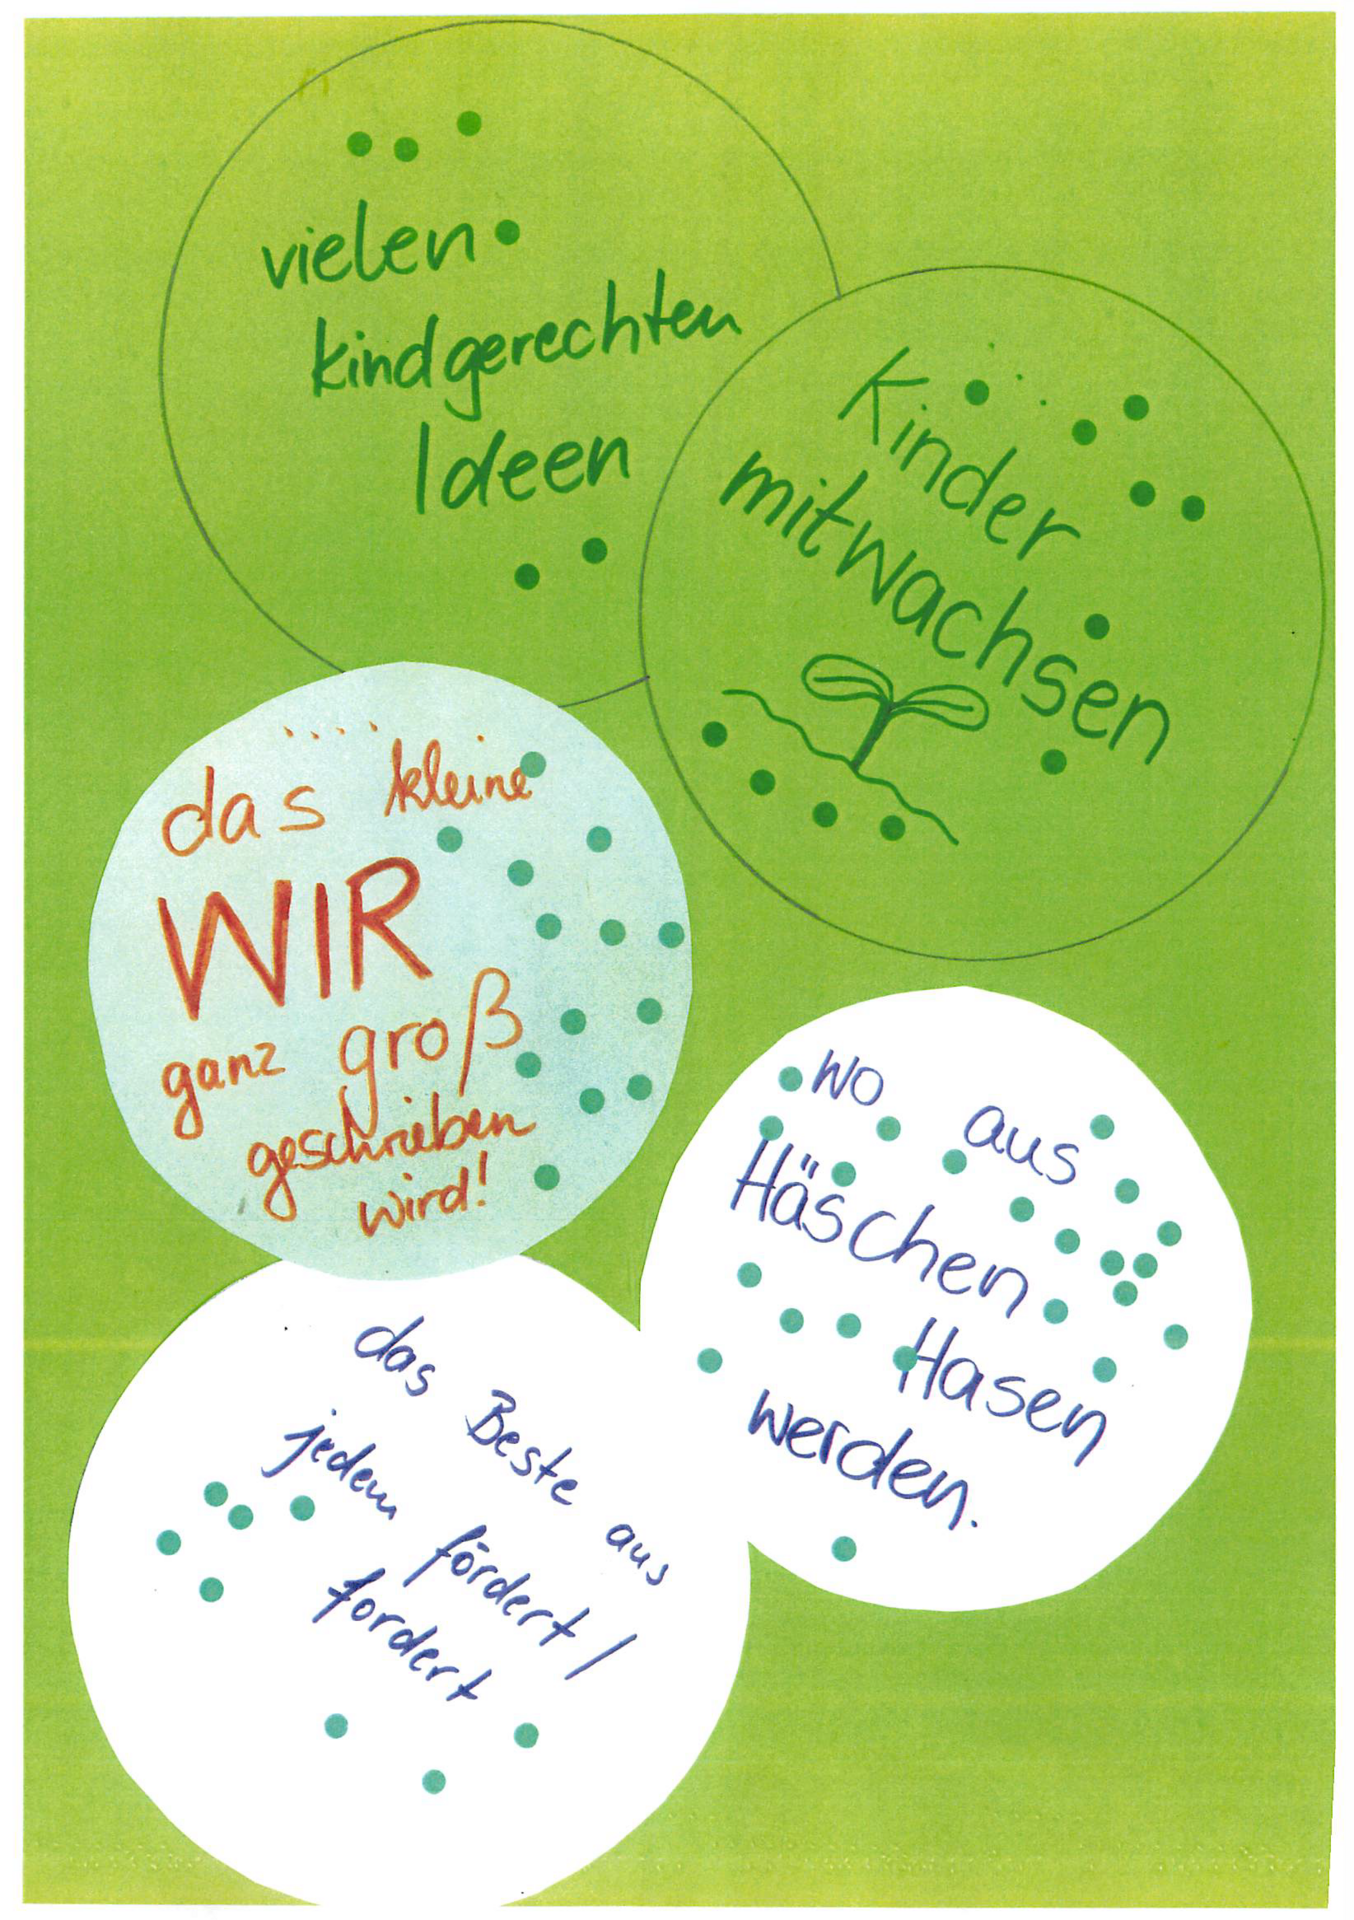 vielen
kindgerechten
Ideen
Kinder
mitwachsen
das kleine
WIR
ganz groß
geschrieben
wird!
wo aus
Häschen
Hasen
werden.
das Beste aus
jedem fördert/
fordert